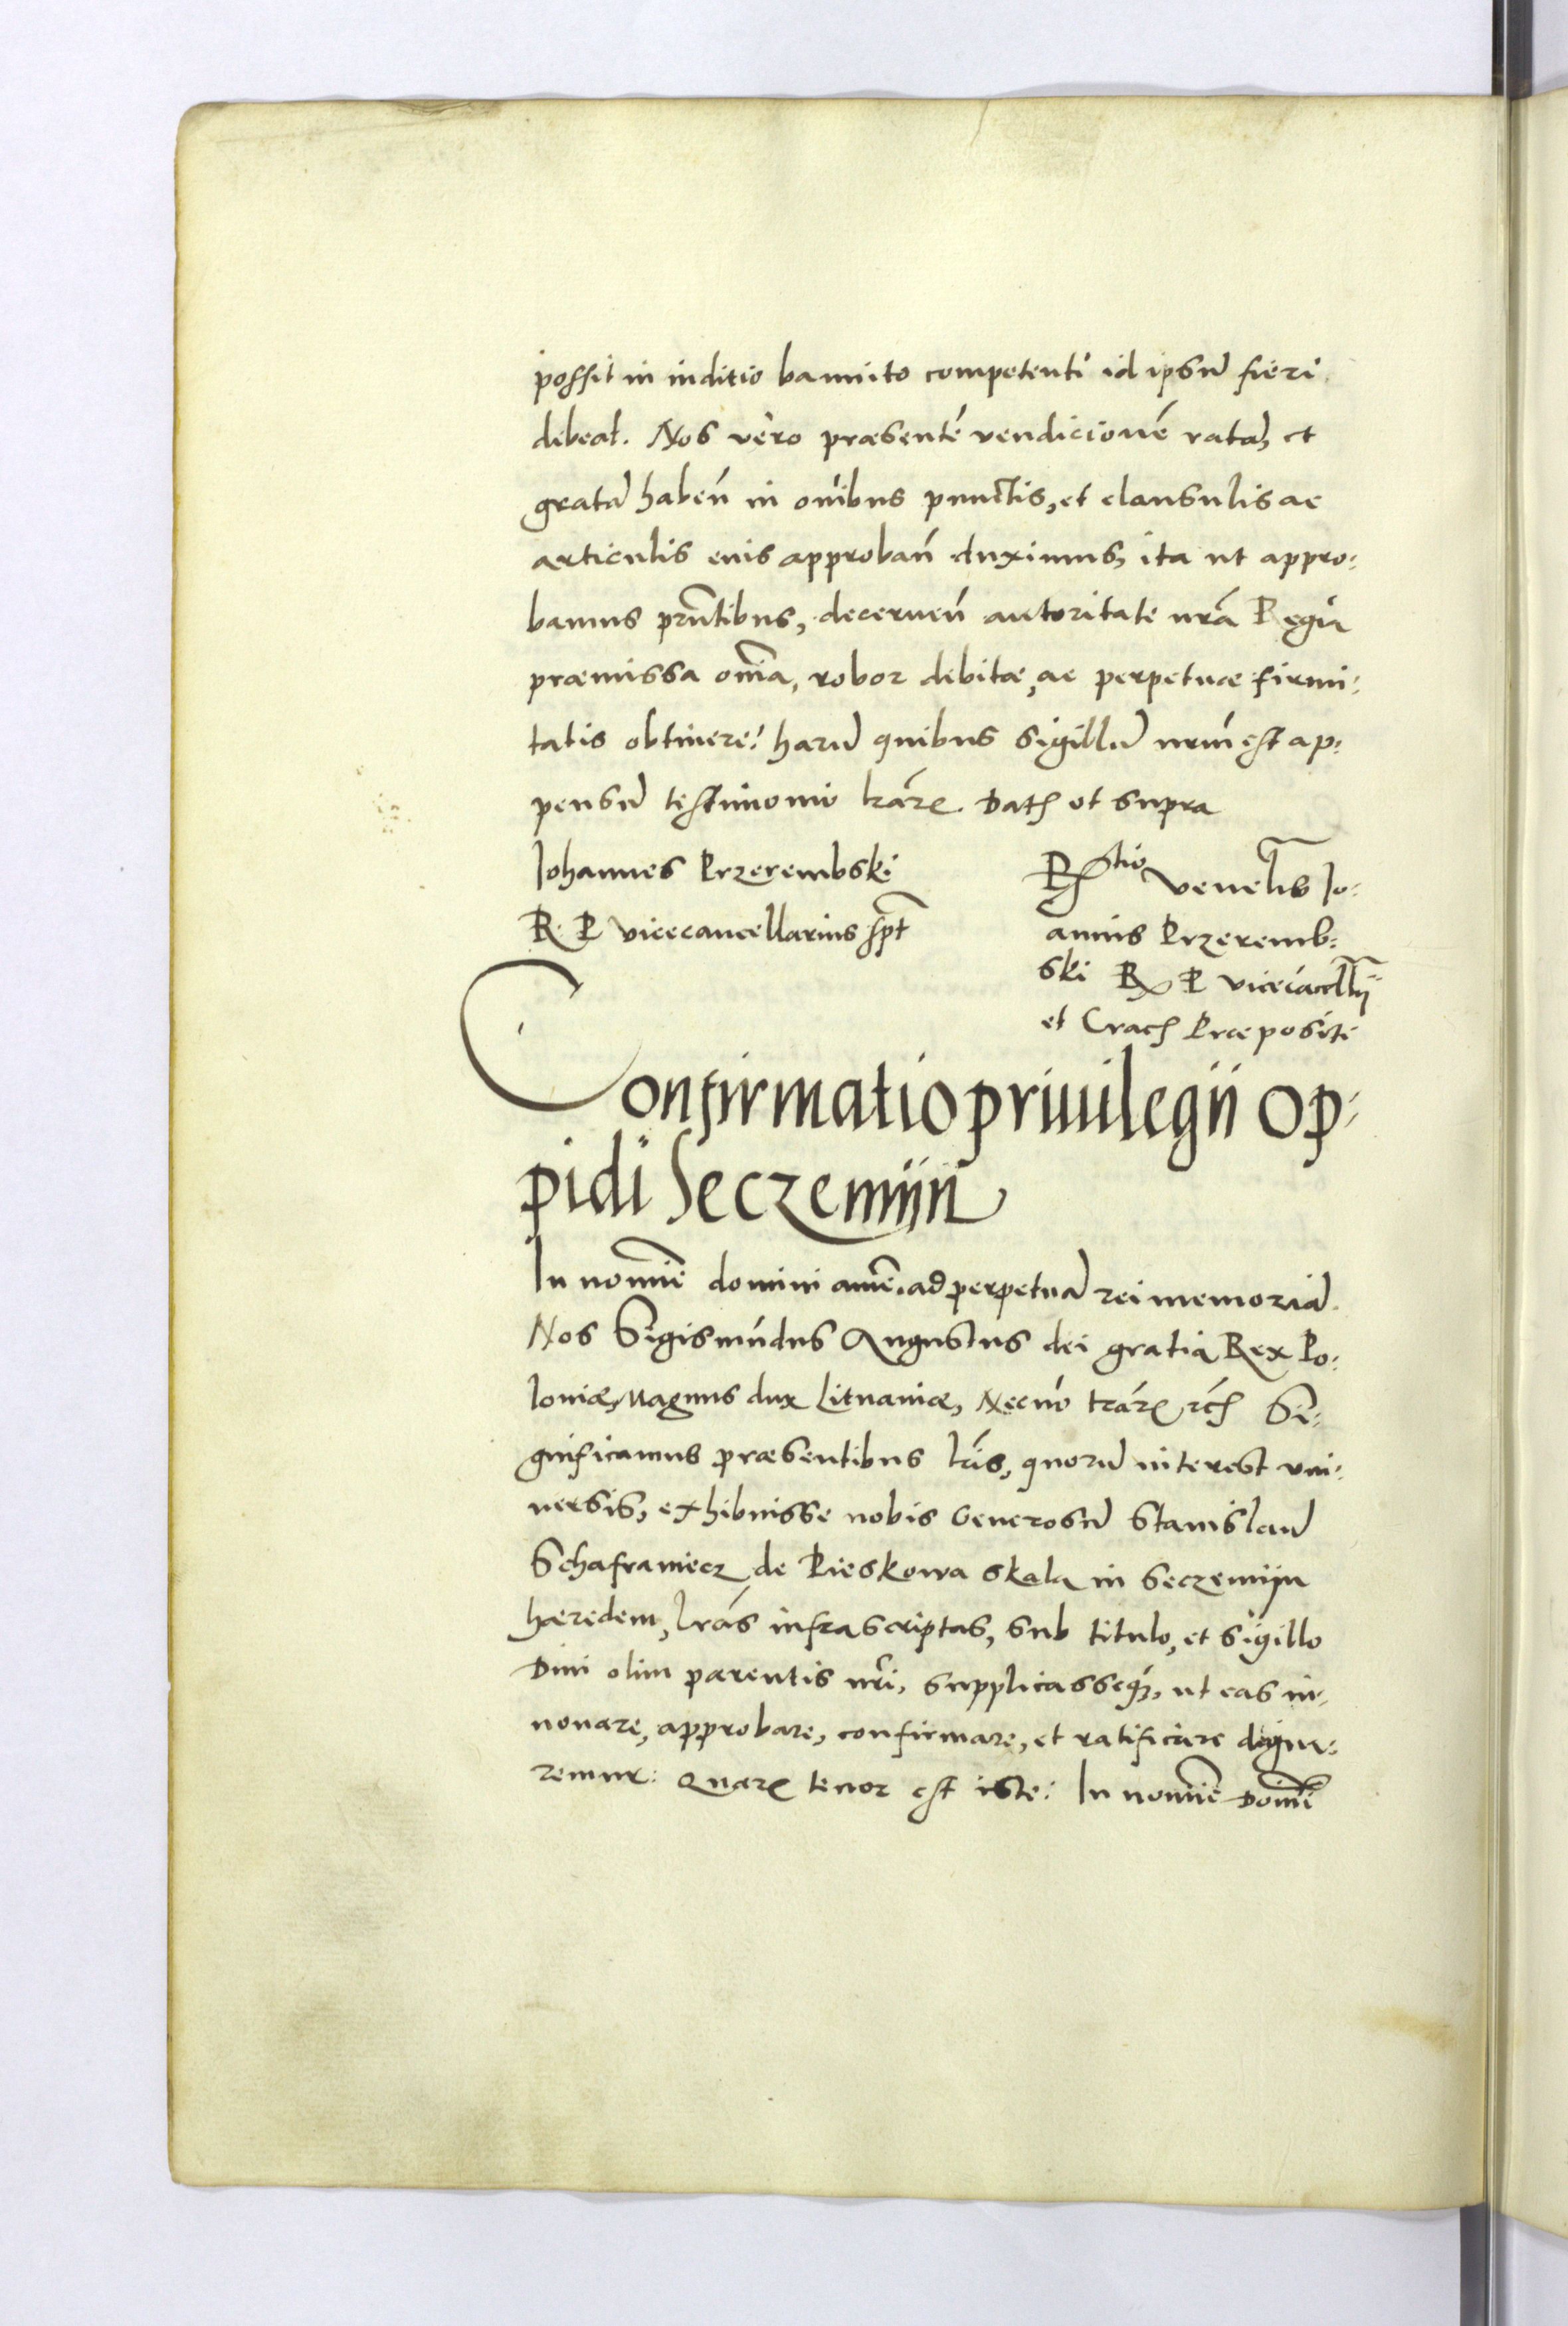 possit in iuditio bannito competenti id ipsū fieri
debeat. Nos vero præsentē vendicionē ratā, et
gratā habeñ in oībus punctis, et clausulis ac
articulis euis approbañ duximus, ita ut appro:
bamus pr̄ntibus, decerneñ autoritate nr̄a Regia
præmissa om̄ia, robor debitæ, ac perpetuæ firmi:
tatis obtinere: harū quibus sigillū nr̄m est ap:
pensū testimonio lr̄arꝝ. Datꝭ ut supra
Johannes Przerembski
R. P. vicecancellarius sp̄t
Rꝭtio venelis Jo:
annis Przeremb:
ski R. P. vicecācellr̄ij
et Cracꝭ Præpositi
Confirmatio priuilegii op:
pidi Seczemijn
In nomīe domini amē. ad perpetuā rei memoriā.
Nos Sigismūdus Augustus dei gratia Rex Po:
loniæ, Magnus dux Lituaniæ, Necnō tr̄arꝝ rc̄ꝭ Si:
gnificamus præsentibus lr̄is, quorū interest vni:
uersis, exhibuisse nobis Generosū Stanislaū
Schafraniecz de Pieskowa skala in Seczemijn
hæredem, lr̄as infrascriptas, sub titulo, et sigillo
Diui olim parentis nr̄i, supplicasseqꝫ, ut eas in:
nouare, approbare, confirmare, et ratificare digna:
remur: Quarꝝ tenor est iste: In nomīe Domī